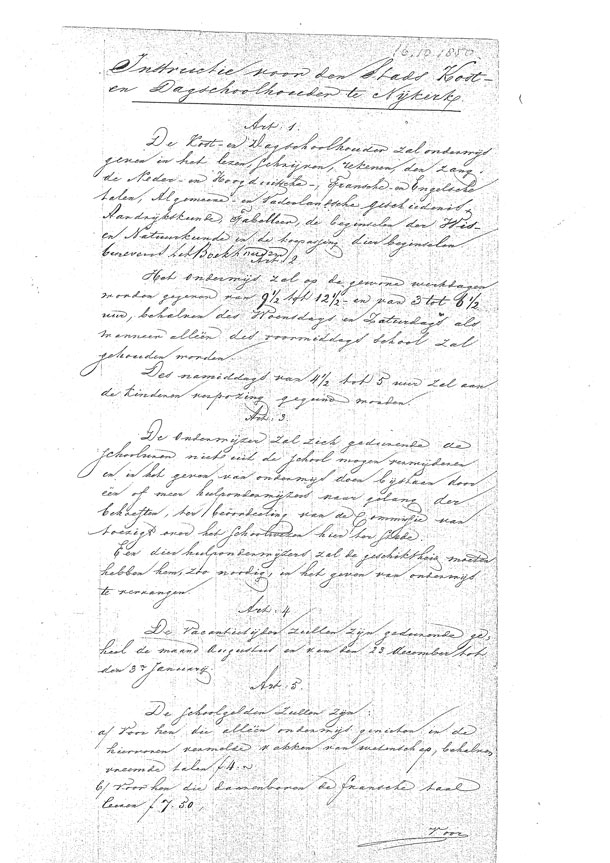 16.10.1850
Instructie voor den Stads Kost-
en Dagschoolhouder te Nijkerk.
Art: 1.
De Kost- en Dagschoolhouder zal onderwijs
geven in het lezen, schrijven, rekenen, den zang,
de Neder- en Hoogduitsche-, Fransche en Engelsche
talen, Algemeene- en Vaderlandsche Geschiedenis,
Aardrijkskunde, Fabelleer, de beginselen der Wis-
en Natuurkunde en de toepassing dier beginselen
benevens het Boekhouden
Art: 2
Het onderwijs zal op de gewone werkdagen
worden gegeven van 9 1/2 tot 12 1/2 - en van 3 tot 6 1/2
uur, behalven des Woensdags en Zaturdags als
wanneer alléén des voormiddags school zal
gehouden worden
Des namiddags van 4 1/2 tot 5 uur zal aan
de kinderen verpozing gegund worden.
Art: 3.
De Onderwijzer zal zich gedurende de
schooluren niet uit de school mogen verwijderen
en in het geven van onderwijs doen bijstaan door
één of meer hulponderwijzers naar gelang der
behoeften, ter beoordeeling van de Commissie van
toezigt over het Schoolwezen hier ter stede.
Een dier hulponderwijzers zal de geschiktheid moeten
hebben hem, zoo noodig, in het geven van onderwijs
te vervangen
Art: 4
De Vacantietijden zullen zijn gedurende ge-
heel de maand Augustus en van den 23 December tot
den 3n January
Art: 5.
De Schoolgelden zullen zijn:
a/ Voor hen, die alléén onderwijs genieten in de
hiervoren vermelde vakken van wetenschap, behalven
vreemde talen f 4.-
b/ Voor hen die daarenboven de fransche taal
leeren f 7.50,
Voor